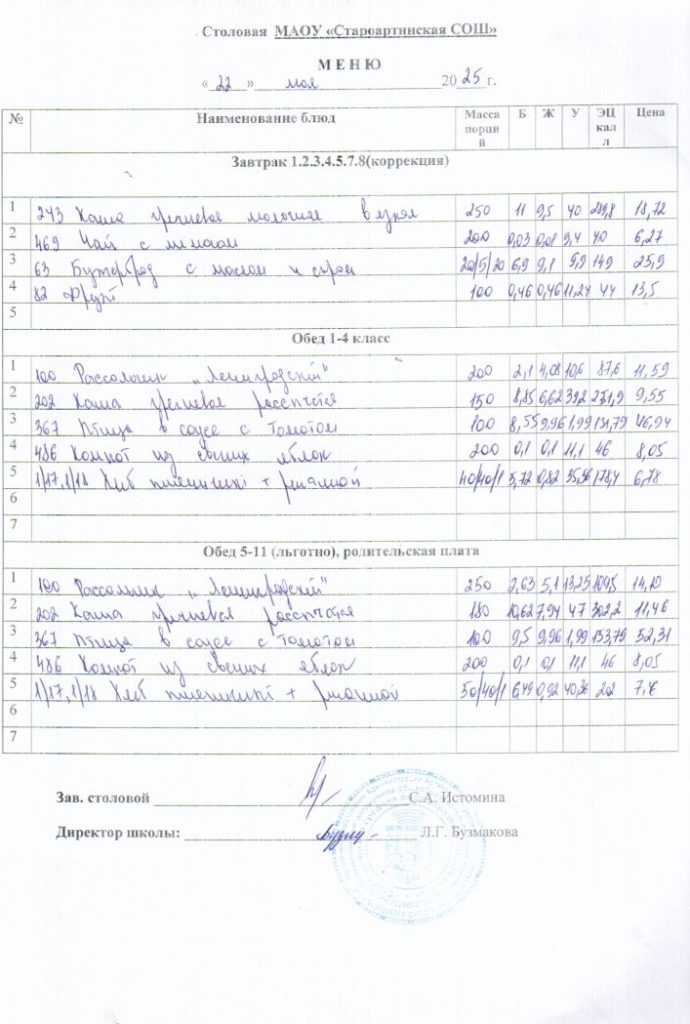 Столовая МАОУ «Староартинская СОШ»
М Е Н Ю
« 22 » мая 2025 г.
№ Наименование блюд Масса порций Б Ж У ЭЦ кал л Цена
Завтрак 1.2.3.4.5.7.8(коррекция)
1 243 Каша гречневая молочная вязкая 250 11 9,5 40 289,8 18,72
2 469 Чай с лимоном 200 0,03 0,01 9,4 40 6,27
3 63 Бутерброд с маслом и сыром 20/5/20 6,9 9,1 9,9 149 25,9
4 82 Фрукт 100 0,46 0,46 11,24 44 13,5
5
Обед 1-4 класс
1 100 Рассольник „Ленинградский" 200 2,1 4,08 10,6 87,6 11,59
2 202 Каша гречневая рассыпчатая 150 8,85 6,62 39,2 251,9 9,55
3 367 Птица в соусе с томатом 100 8,55 9,96 1,99 131,79 46,94
4 486 Компот из свежих яблок 200 0,1 0,1 11,1 46 8,05
5 1/17,1/18 Хлеб пшеничный + ржаной 40/40/1 5,72 0,82 35,56 178,4 6,78
6
7
Обед 5-11 (льготно), родительская плата
1 100 Рассольник „Ленинградский" 250 2,63 5,1 13,25 109,5 14,10
2 202 Каша гречневая рассыпчатая 180 10,62 7,94 47 302,2 11,46
3 367 Птица в соусе с томатом 100 9,5 9,96 1,99 153,79 52,31
4 486 Компот из свежих яблок 200 0,1 0,1 11,1 46 8,05
5 1/17,1/18 Хлеб пшеничный + ржаной 50/40/1 6,49 0,92 40,36 202
6
7
Зав. столовой С.А. Истомина
Директор школы: Л.Г. Бузмакова